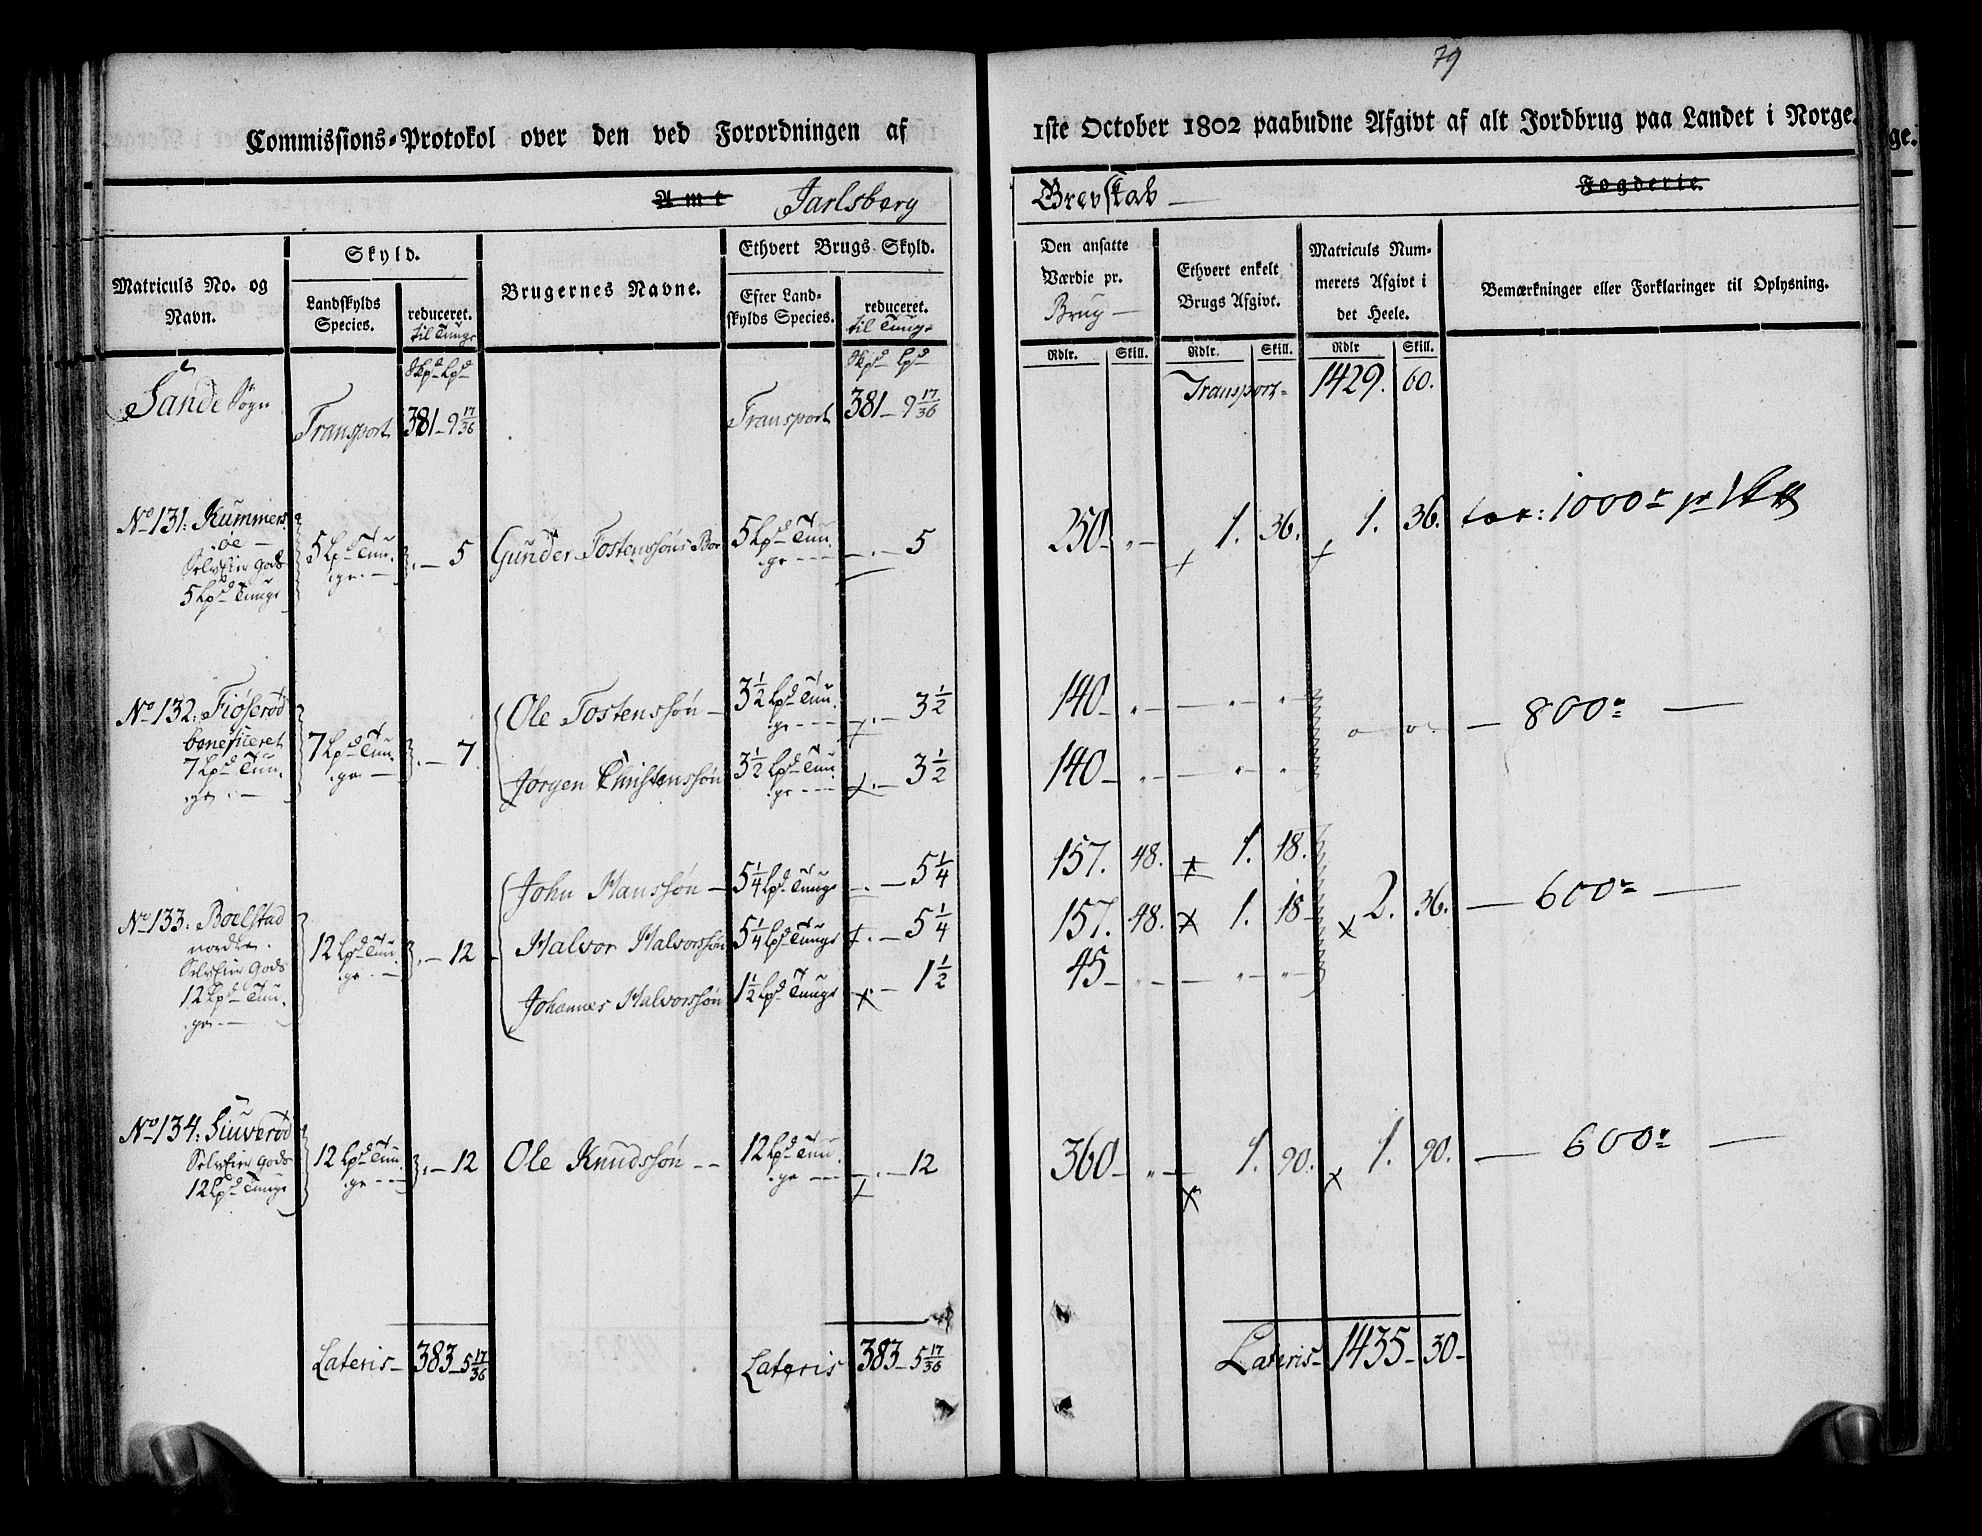 79
Commissions-Protokol over den ved Forordningen af 1ste October 1802 paabudne Afgivt af alt Jordbrug paa Landet i Norge.
Amt Jarlsberg Grevskab Fogderie.
Matriculs No. og Navn.
Skyld.
Landskylds Species.
reduceret. til Tunge
Brugernes Navne.
Ethvert Brugs Skyld.
Efter Landskylds Species.
reduceret. til Tunge
Den ansatte Værdie pr. Brug
Ethvert enkelt Brugs Afgivt.
Matriculs Nummerets Afgivt i det Heele.
Bemærkninger eller Forklaringer til Oplysning.
Skpd Lpd Skpd Lpd Rdlr. Skill. Rdlr. Skill. Rdlr Skill.
Sande Sogn Transport 381 - 9 17/36 Transport 381 - 9 17/36 Transport 1429. 60.
No 131: Kummersøe
Selveier Gods
5 Lpd Tunge
5 Lpd Tunge 5 Gunder Tostenssøns 5 Lpd Tunge 5 250 1. 36. 1. 36. tax: 1000r pr
No 132: Fiøserød
beneficeret
7 Lpd Tunge
7 Lpd Tunge 7
Ole Tostenssøn 3 1/2 Lpd Tunge 3 1/2 140 800r
Jørgen Christenssøn 3 1/2 Lpd Tunge 3 1/2 140
No 133: Boelstad
nordre.
Selveier Gods
12 Lpd Tunge
12 Lpd Tunge 12
John Hanssøn 5 1/4 Lpd Tunge 5 1/4 157. 48. x 1. 18.
Halvor Halvorssøn 5 1/4 Lpd Tunge 5 1/4 157. 48. x 1. 18 x 2. 36. 600r
Johannes Halvorssøn 1 1/2 Lpd Tunge 1 1/2 45
No 134: Siuverød
Selveier Gods
12 Lpd Tunge
12 Lpd Tunge 12 Ole Knudssøn 12 Lpd Tunge 12 360 x 1. 90. x 1. 90. 600r
Lateris 383 - 5 17/36 Lateris 383 - 5 17/36 Lateris 1435 - 30
ge.